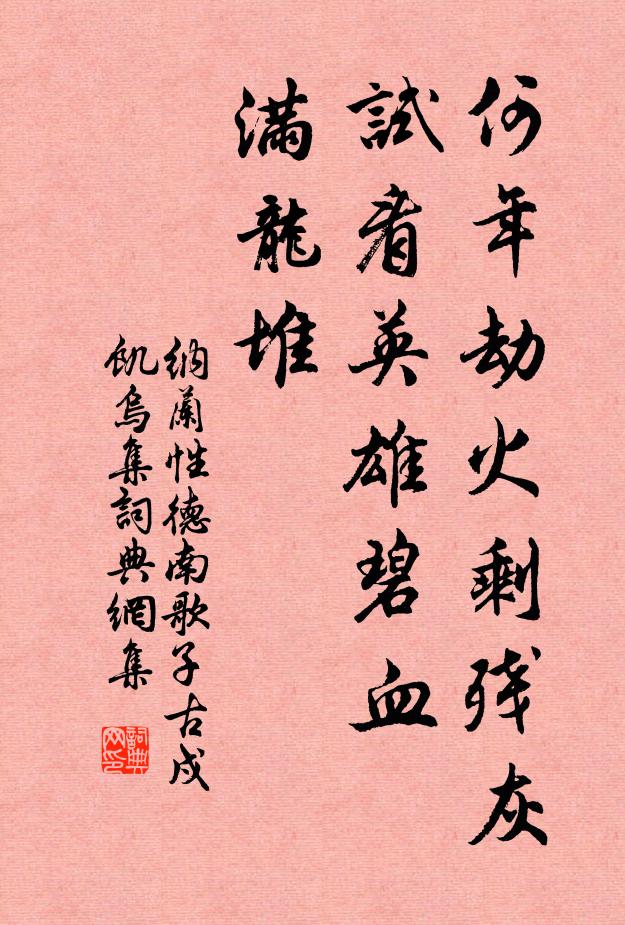 何年劫火剩残灰
試看英雄碧血
滿龍堆
納蘭性德南歌子古戍
飢烏集詞典網集
詞典
网印